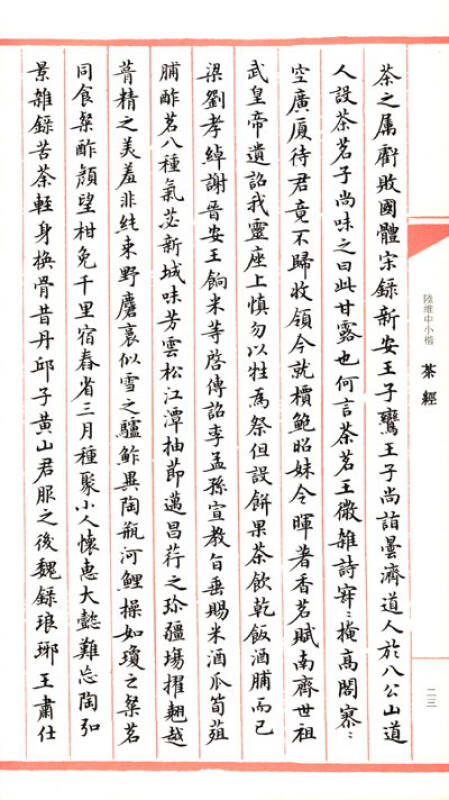 陸維中小楷
茶經
二三
茶之属虧敗國體宋錄新安王子鸞王子尚詣曇濟道人於八公山道
人設茶茗子尚味之曰此甘露也何言茶茗王微雜詩寂〻掩高閣寥〻
空廣廈待君竟不歸收領今就檟鮑昭妹令暉著香茗賦南齊世祖
武皇帝遺詔我靈座上慎勿以牲為祭但設餅果茶飲乾飯酒脯而已
梁劉孝綽謝晉安王餉米等啓傳詔李孟孫宣教旨垂賜米酒瓜筍菹
脯酢茗八種氣苾新城味芳雲松江潭抽節邁昌荇之珍疆埸擢翹越
菁精之美羞非純束野麏裛似雪之驢鮓異陶瓶河鯉操如瓊之粲茗
同食粲酢顏望柑免千里宿舂省三月種聚小人懷惠大懿難忘陶弘
景雜錄苦茶輕身換骨昔丹邱子黃山君服之後魏錄琅琊王肅仕